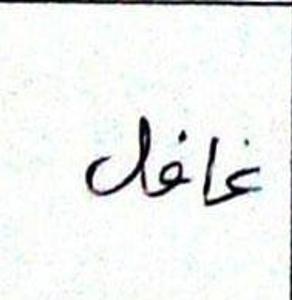 غافل